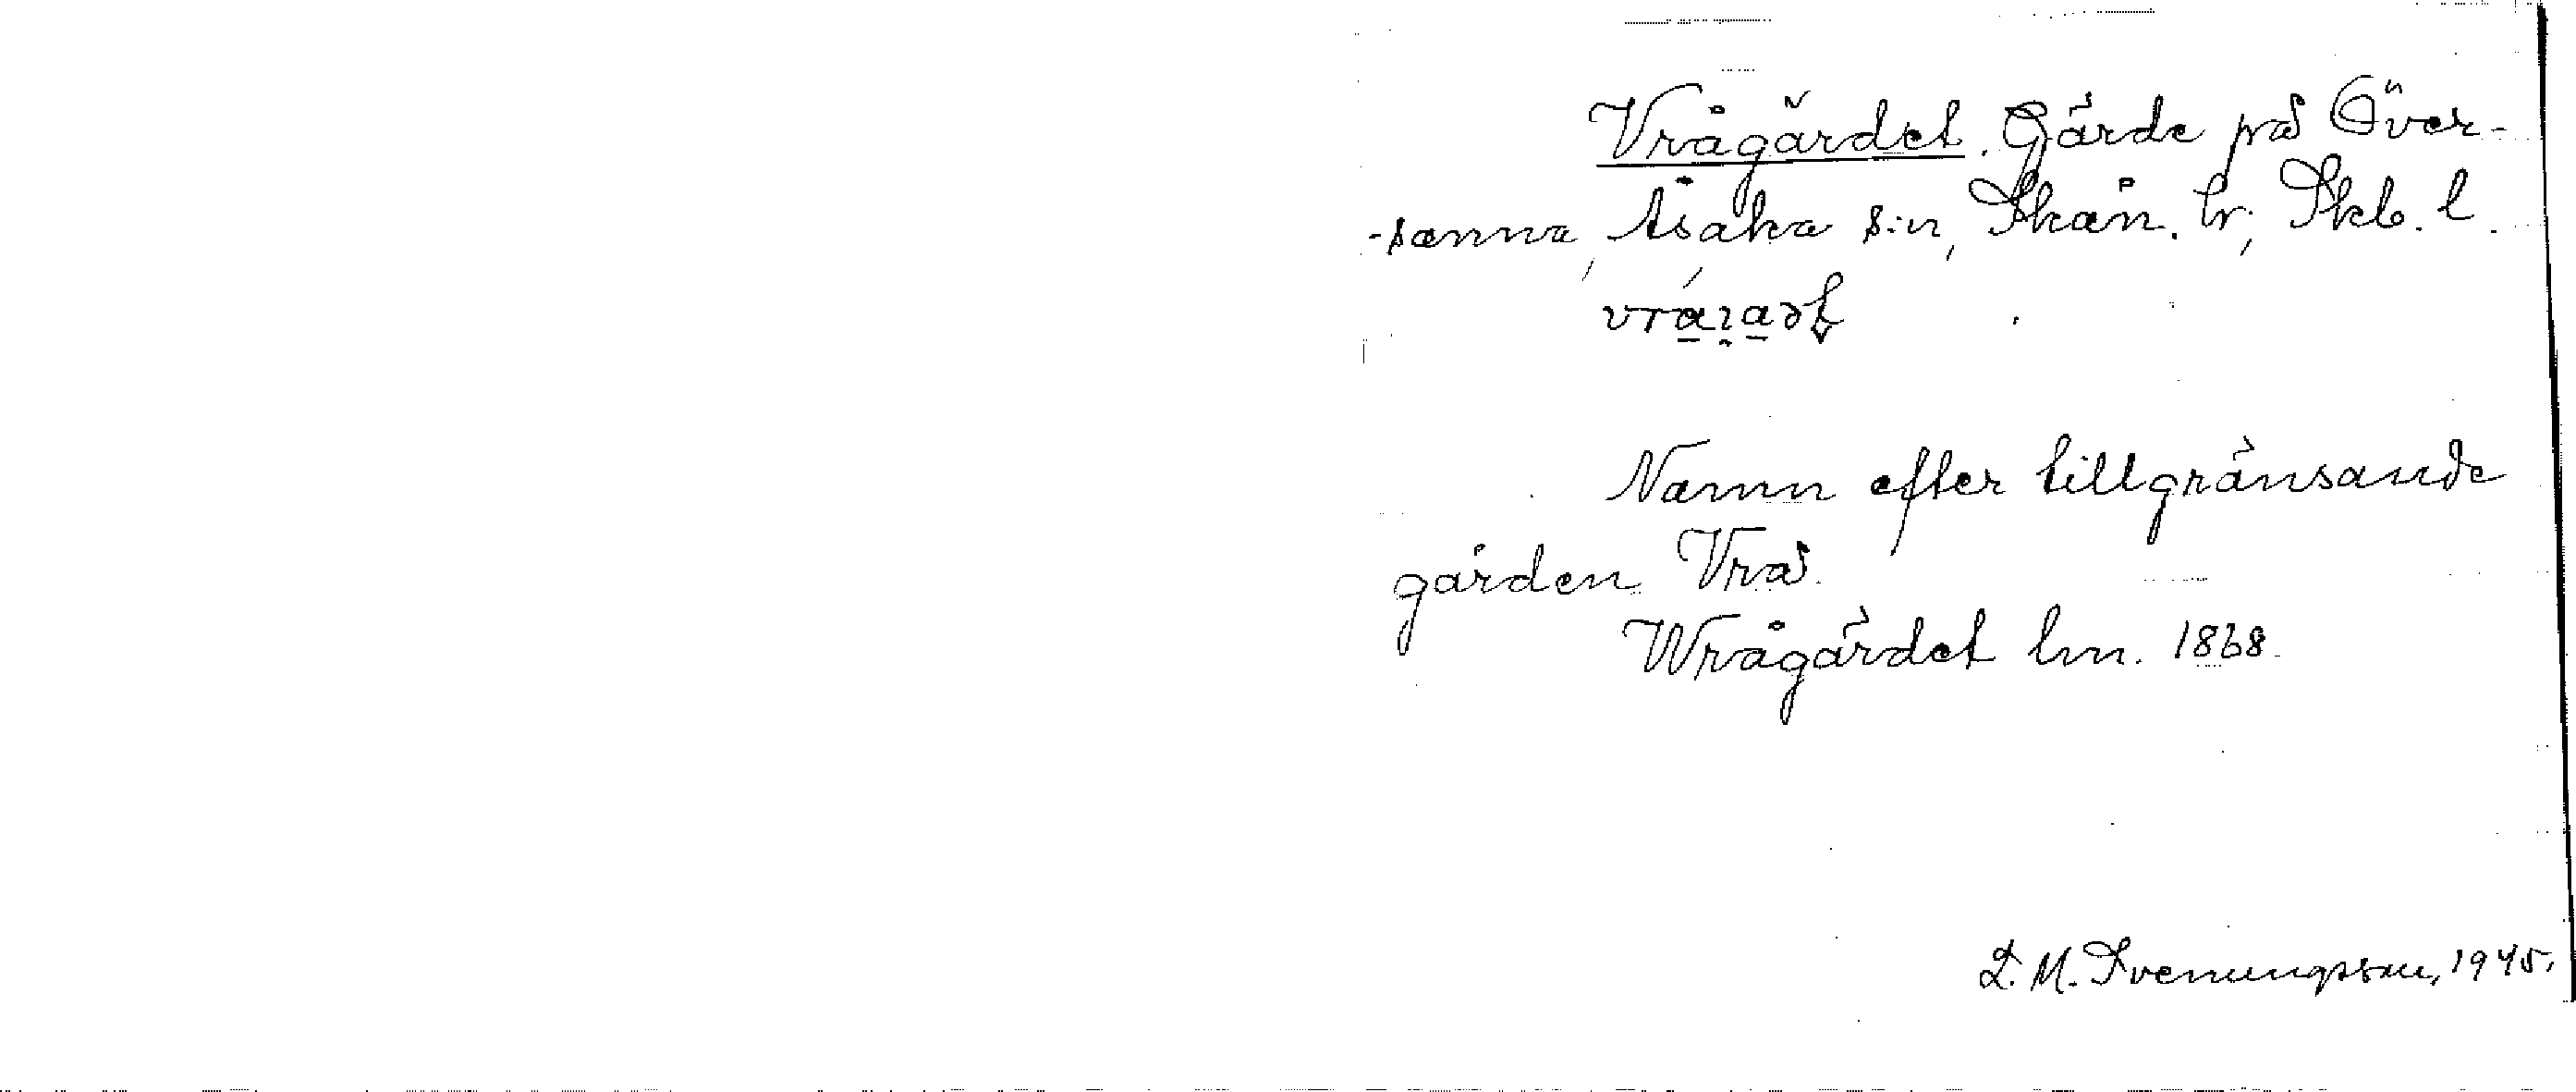 Vrågärdet. Gärde på Över-
-sanna, Åsaka s:n, Skån. hr, Skb. l.
Namn efter tillgränsande
gården Vrå.
Wrågärdet lm. 1868.
L. M. Svenungsson, 1945.